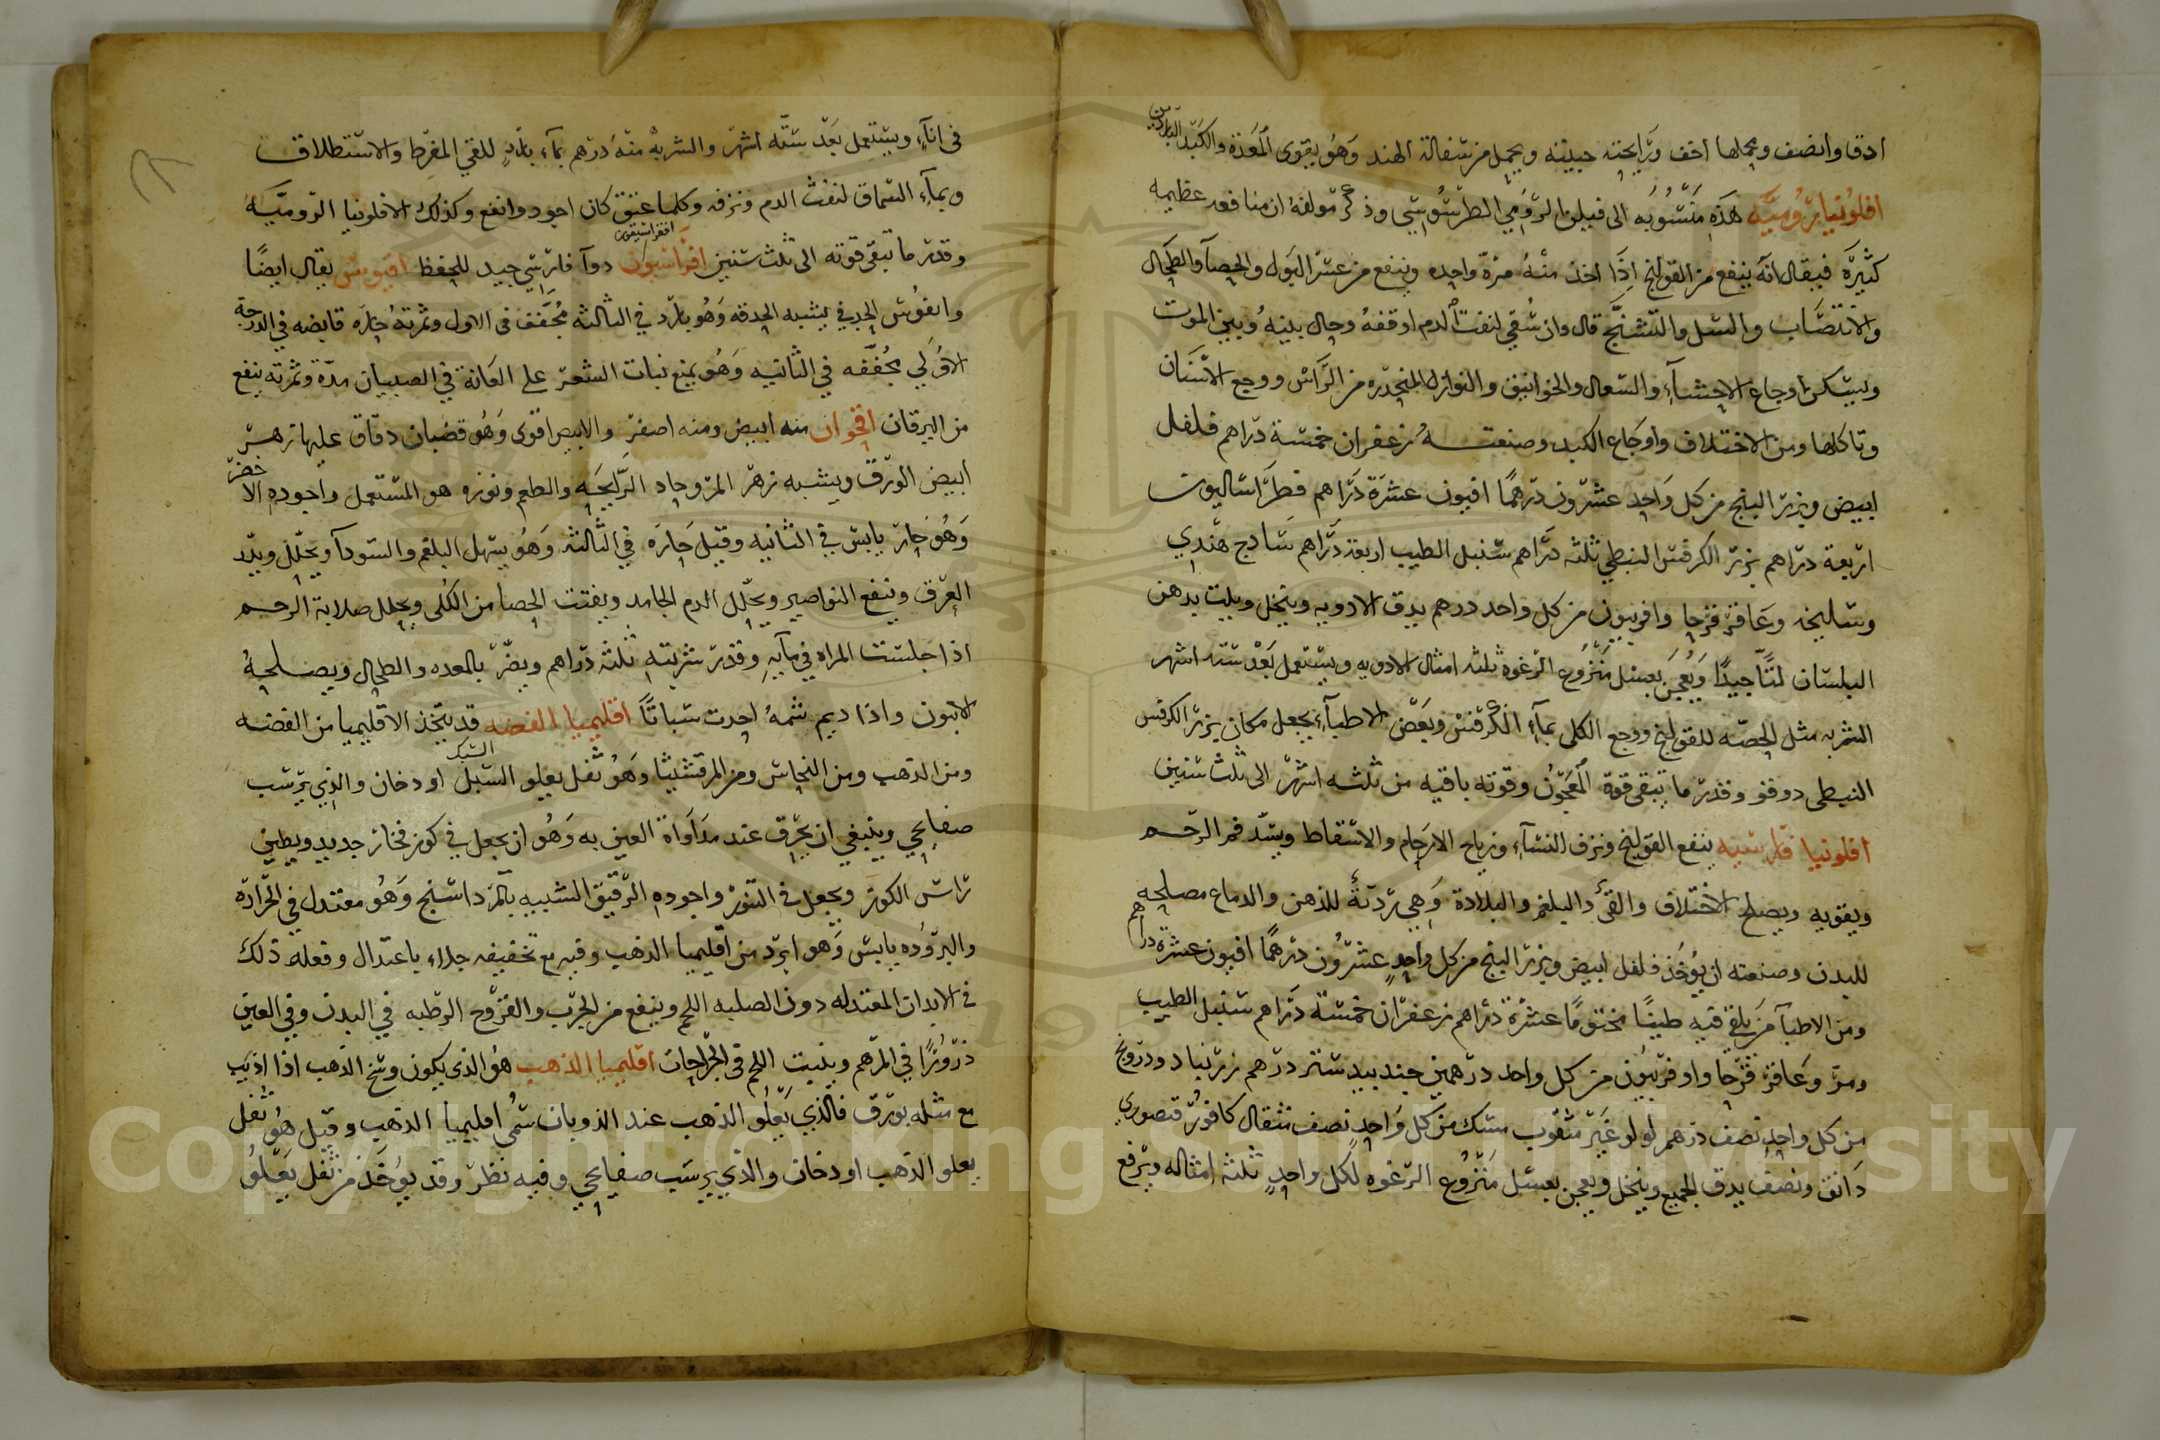 ادق وانصف ويجملها اخف ورايحته جيدة ويحمل من سفالة الهند وهو يقوى المعدة والكبد الباردين
افلونيا رومية هذه منسوبه الى فيلن الرومي الطرسوسي وذكر مولفه ان منافعه عظيمه
كثيرة فيقال انه ينفع من القولنج اذا اخذ منه مرة واحده وينفع من عسر البول والحصاه والطحال
والانتصاب والسل والتشنج قال وان سقي لنفث الدم اوقفه وحال بينه وبين الموت
ويسكن اوجاع الاحشاء والسعال والخوانيق والنوازل المنحدره من الراس ووجع الاسنان
وتاكلها ومن الاختلاف واوجاع الكبد وصنعته زعفران خمسة دراهم فلفل
ابيض وبزر البنج من كل واحد عشرون درهما افيون عشرة دراهم فطراساليون
اربعة دراهم بزر الكرفس النبطي ثلثه دراهم سنبل الطيب اربعة دراهم سادج هندي
وسليخه وعاقر قرحا وافربيون من كل واحد درهم يدق الادويه وينخل ويلت بدهن
البلسان لتا جيدا ويعجن بعسل منزوع الرغوه ثلثه امثال الادويه ويستعمل بعد سته اشهر
الشربه مثل الحمصه للقولنج ووجع الكلى بماء الكرفس وبعض الاطباء يجعل مكان بزر الكرفس
النبطي دوقو وقدر ما تبقى قوة المعجون وقوته باقيه من ثلثه اشهر الى ثلث سنين
افلونيا فارسيه ينفع القولنج ونزف النساء ورياح الارحام والاسقاط ويشد فم الرحم
ويقويه ويصلح الاختلاف والقئ والبلغم والبلادة وهي ردية للذهن والدماغ مصلحه
للبدن وصنعته ان يؤخذ فلفل ابيض وبزر البنج من كل واحد عشرون درهما افيون عشرة دراهم
ومن الاطبا من يلقي فيه طينا مختوما عشرة دراهم زعفران خمسة دراهم سنبل الطيب
ومر وعاقر قرحا واوفربيون من كل واحد درهمين جندبيدستر درهم زرنباد ودرونج
من كل واحد نصف درهم لولو غير مثقوب مسك من كل واحد نصف مثقال كافور قنصوري
دانق ونصف يدق الجميع وينخل ويعجن بعسل منزوع الرغوه لكل واحد ثلثه امثاله ويرفع
فى اناء ويستعمل بعد سته اشهر والشربه منه درهم بماء بارد للقي المفرط والاستطلاق
وبماء السماق لنفث الدم ونزفه وكلما عتق كان اجود وانفع وكذلك الافلونيا الروميه
وقدر ما تبقى قوته الى ثلث سنين افراسيون دوآ فارسي جيد للحفظ افيوس يقال ايضا
وانفوس الجرفي يشبه الحدقه وهو بارد في الثالثه مجفف فى الاول وثمرته حاره قابضه في الدرجة
الاولي مجففه في الثانيه وهو يمنع نبات الشعر على العانة في الصبيان مدة وثمرته ينفع
من اليرقان اقحوان منه ابيض ومنه اصفر والابيض اقوى وهو قضبان دقاق عليها زهر
ابيض الورق ويشبه زهر المر وحاد الرايحه والطعم ونوره هو المستعمل واجوده الاخضر
وهو حار يابس في الثانيه وقيل حاره في الثالثه وهو يسهل البلغم والسودا ويحلل ويدر
العرق وينفع النواصير ويحلل الدم الجامد ويفتت الحصا من الكلى ويحلل صلابة الرحم
اذا جلست المراه في مآيه وقدر شربته ثلثه دراهم ويضر بالمعده والطحال ويصلحه
الانبون واذا ديم شمه احدث سباتا اقليميا الفضه قد يتخذ الاقليميا من الفضه
ومن الذهب ومن النحاس ومن المرقشيثا وهو ثفل يعلو السبك او دخان والذي يرسب
صفايحي وينبغي ان يحرق عند مداواة العين به وهو ان يجعل في كوز فخار جديد ويطين
راس الكوز ويجعل في التنور واجوده الرقيق الشبيه بالمرداسنج وهو معتدل في الحرارة
والبروده يابس وهو ابرد من اقليميا الذهب وفيه مع تجفيفه جلاء باعتدال وفعله ذلك
فى الابدان المعتدله دون الصلبه اللحم وينفع من الجرب والقروح الرطبه في البدن وفي العين
ذرورا في المرهم وينبت اللحم في الجراحات اقليميا الذهب هو الذى يكون وسخ الذهب اذا اذيب
مع مثله بورق فالذي يعلو الذهب عند الذوبان سمي اقليميا الذهب وقيل هو ثفل
يعلو الذهب او دخان والذي يرسب صفيايحي وفيه نظر وقد يؤخذ من ثفل يعلو
Copyright © King Saud University